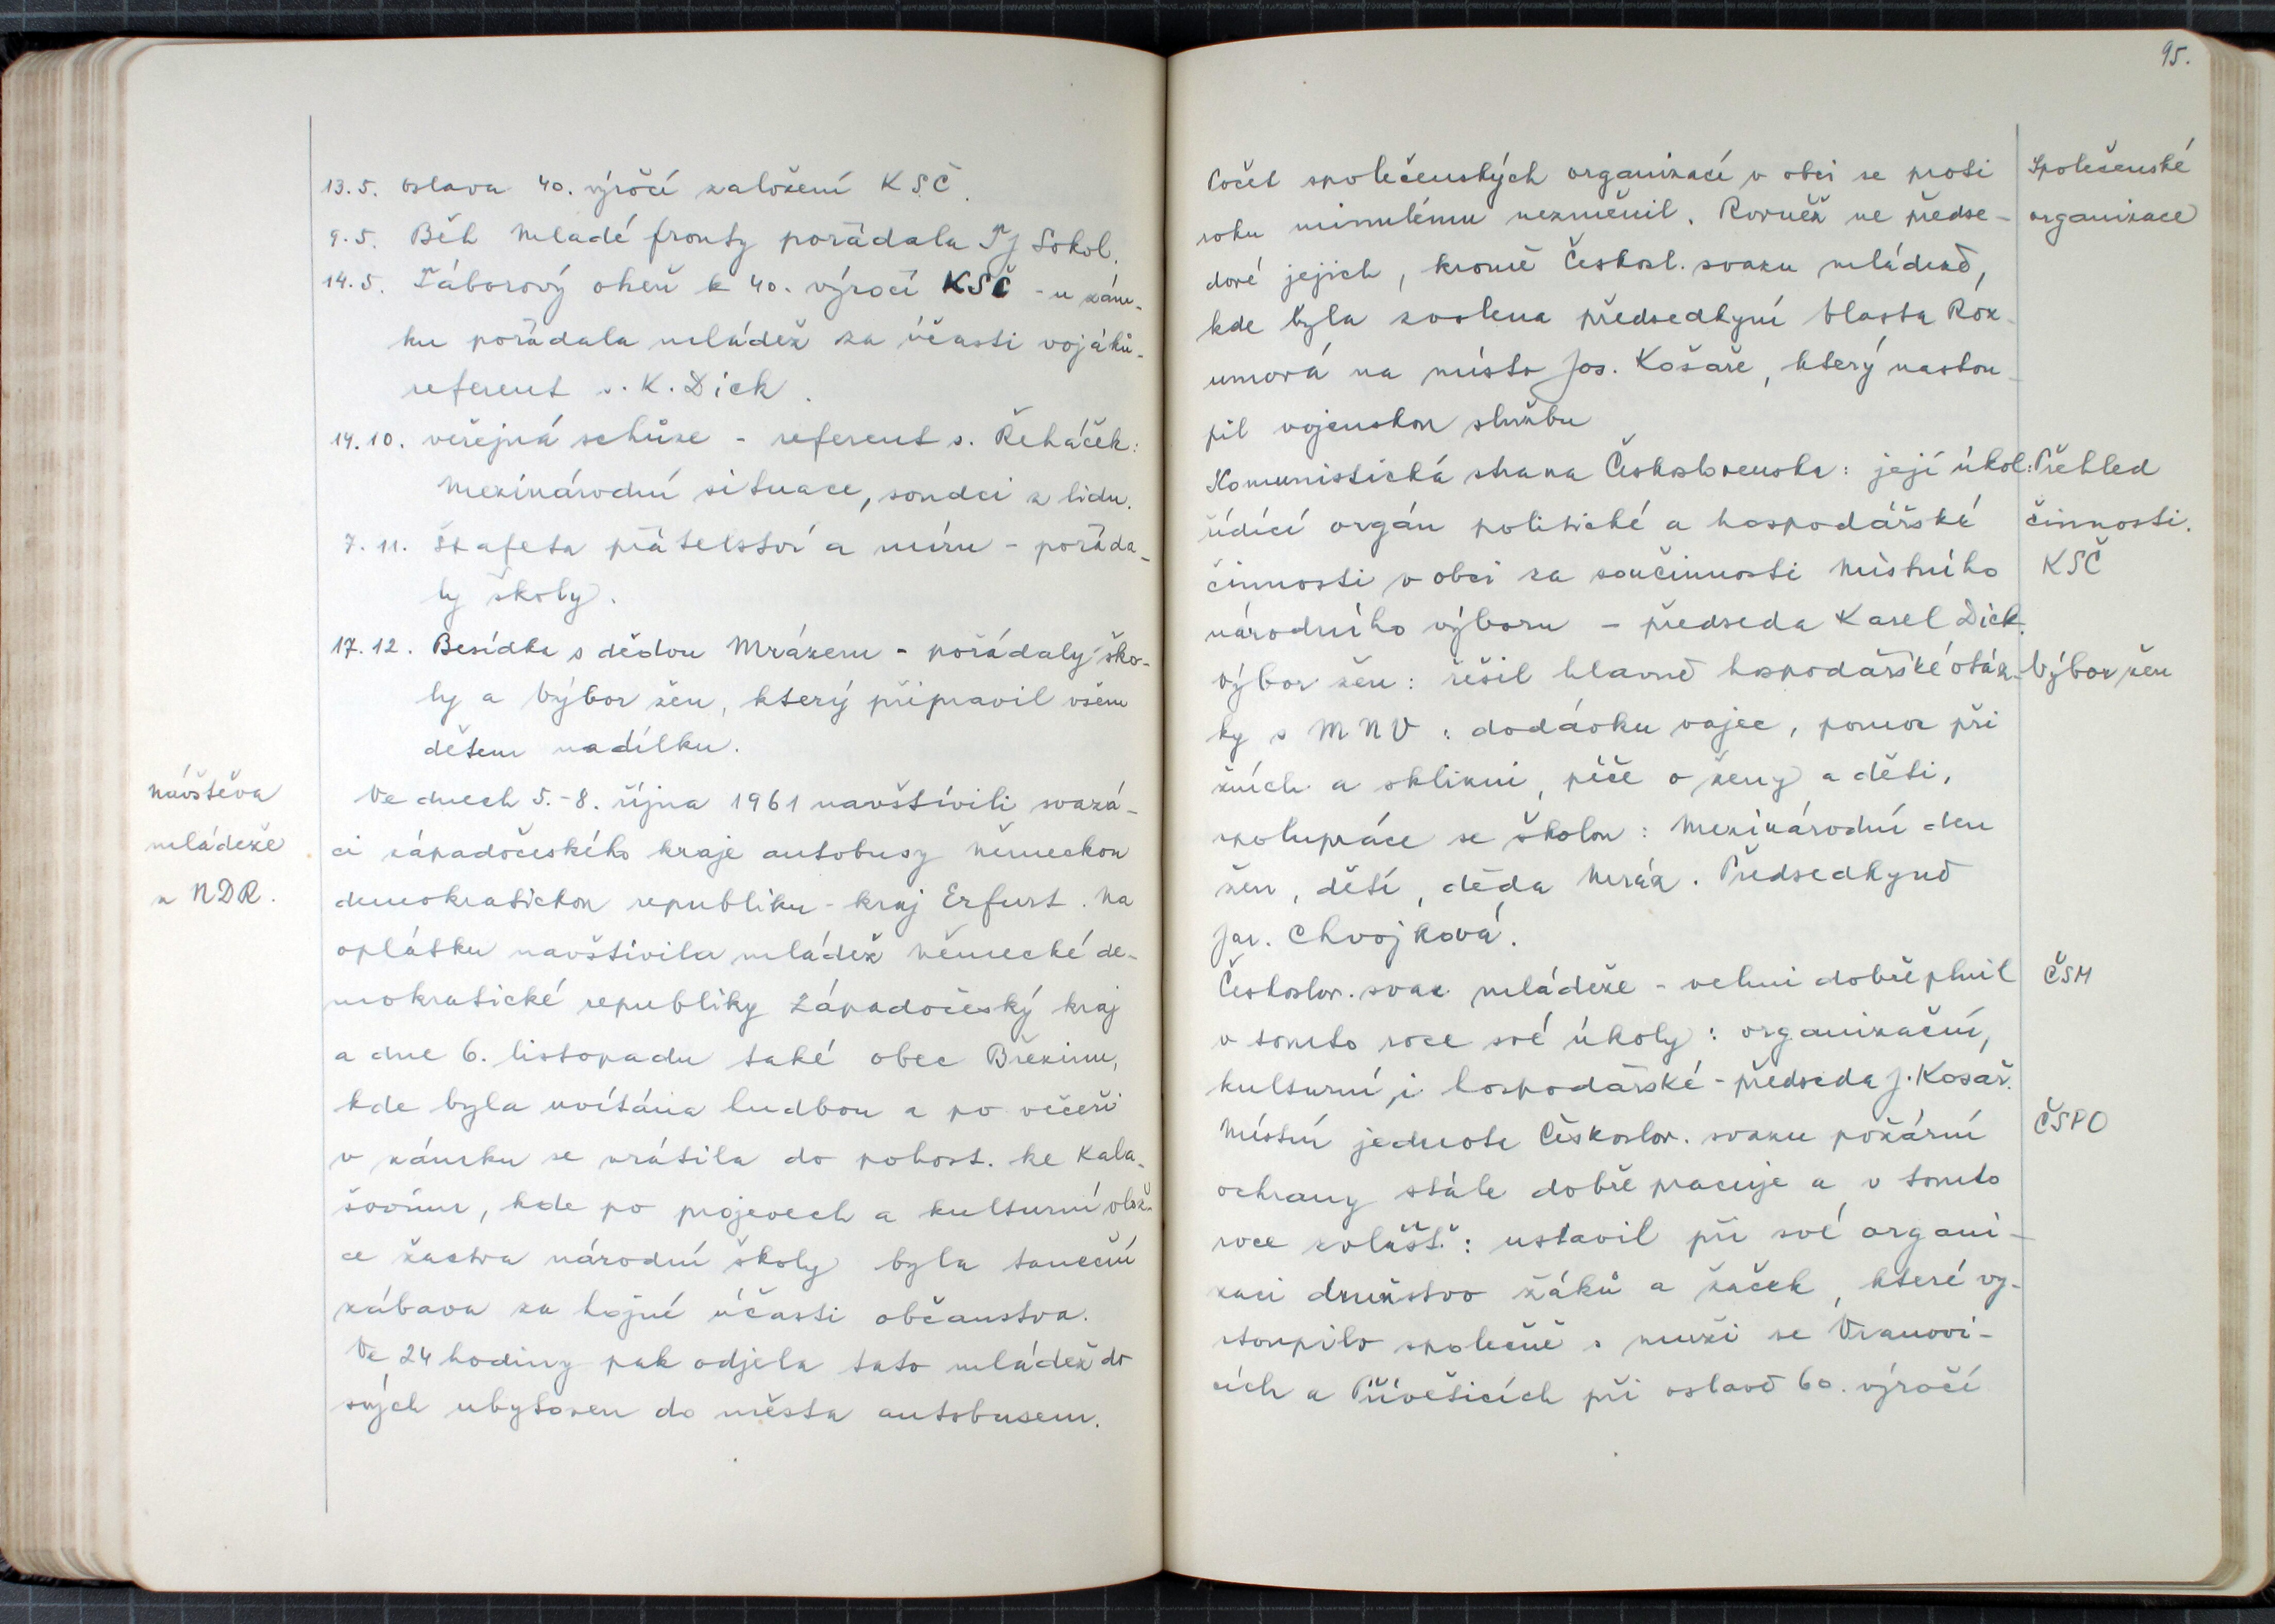 13.5. oslava 40. výročí založení KSČ.
9.5. Běh Mladé fronty pořádala TJ Sokol.
14.5. Táborový oheň k 40. výročí KSČ - u zám-
ku pořádala mládež za účasti vojáků -
referent s. K. Dick.
14.10. veřejná schůze - referent s. Řeháček:
Mezinárodní situace, soudci z lidu.
7.11. Štafeta přátelství a míru - pořáda-
ly školy.
17.12. Besídka s dědou Mrázem - pořádaly ško-
ly a Výbor žen, který připravil všem
dětem nadílku.
Návštěva
mládeže
z NDR.
Ve dnech 5.-8. října 1961 navštívili svazá-
ci západočeského kraje autobusy Německou
demokratickou republiku - kraj Erfurt. Na
oplátku navštívila mládež Německé de-
mokratické republiky Západočeský kraj
a dne 6. listopadu také obec Březinu,
kde byla uvítána hudbou a po večeři
v zámku se vrátila do pohost. ke Kala-
šovům, kde po projevech a kulturní vlož-
ce žactva národní školy byla taneční
zábava za hojné účasti občanstva.
Ve 24 hodiny pak odjela tato mládež do
svých ubytoven do města autobusem.
95.
Počet společenských organizací v obci se proti
roku minulému nezměnil. Rovněž ne předse-
dové jejich, kromě Českosl. svazu mládeže,
kde byla zvolena předsedkyní Vlasta Roz-
umová na místo Jos. Košaře, který nastou-
pil vojenskou službu
Komunistická strana Československa: její úkol:
řídící orgán politické a hospodářské
činnosti v obci za součinnosti Místního
národního výboru - předseda Karel Dick.
Výbor žen: řešil hlavně hospodářské otáz-
ky s MNV: dodávku vajec, pomoc při
žních a sklizni, péče o ženy a děti,
spolupráce se školou: Mezinárodní den
žen, dětí, děda Mráz. Předsedkyně
Jar. Chvojková.
Českoslov. svaz mládeže - velmi dobře plnil
v tomto roce své úkoly: organizační,
kulturní, i hospodářské - předseda J. Kosař.
Místní jednota Českoslov. svazu požární
ochrany stále dobře pracuje a v tomto
roce zvlášť: ustavil při své organi-
zaci družstvo žáků a žaček, které vy-
stoupilo společně s muži ve Vranovi-
cích a Přívěticích při oslavě 60. výročí
Společenské
organizace
Přehled
činnosti.
KSČ
Výbor žen
ČSM
ČSPO